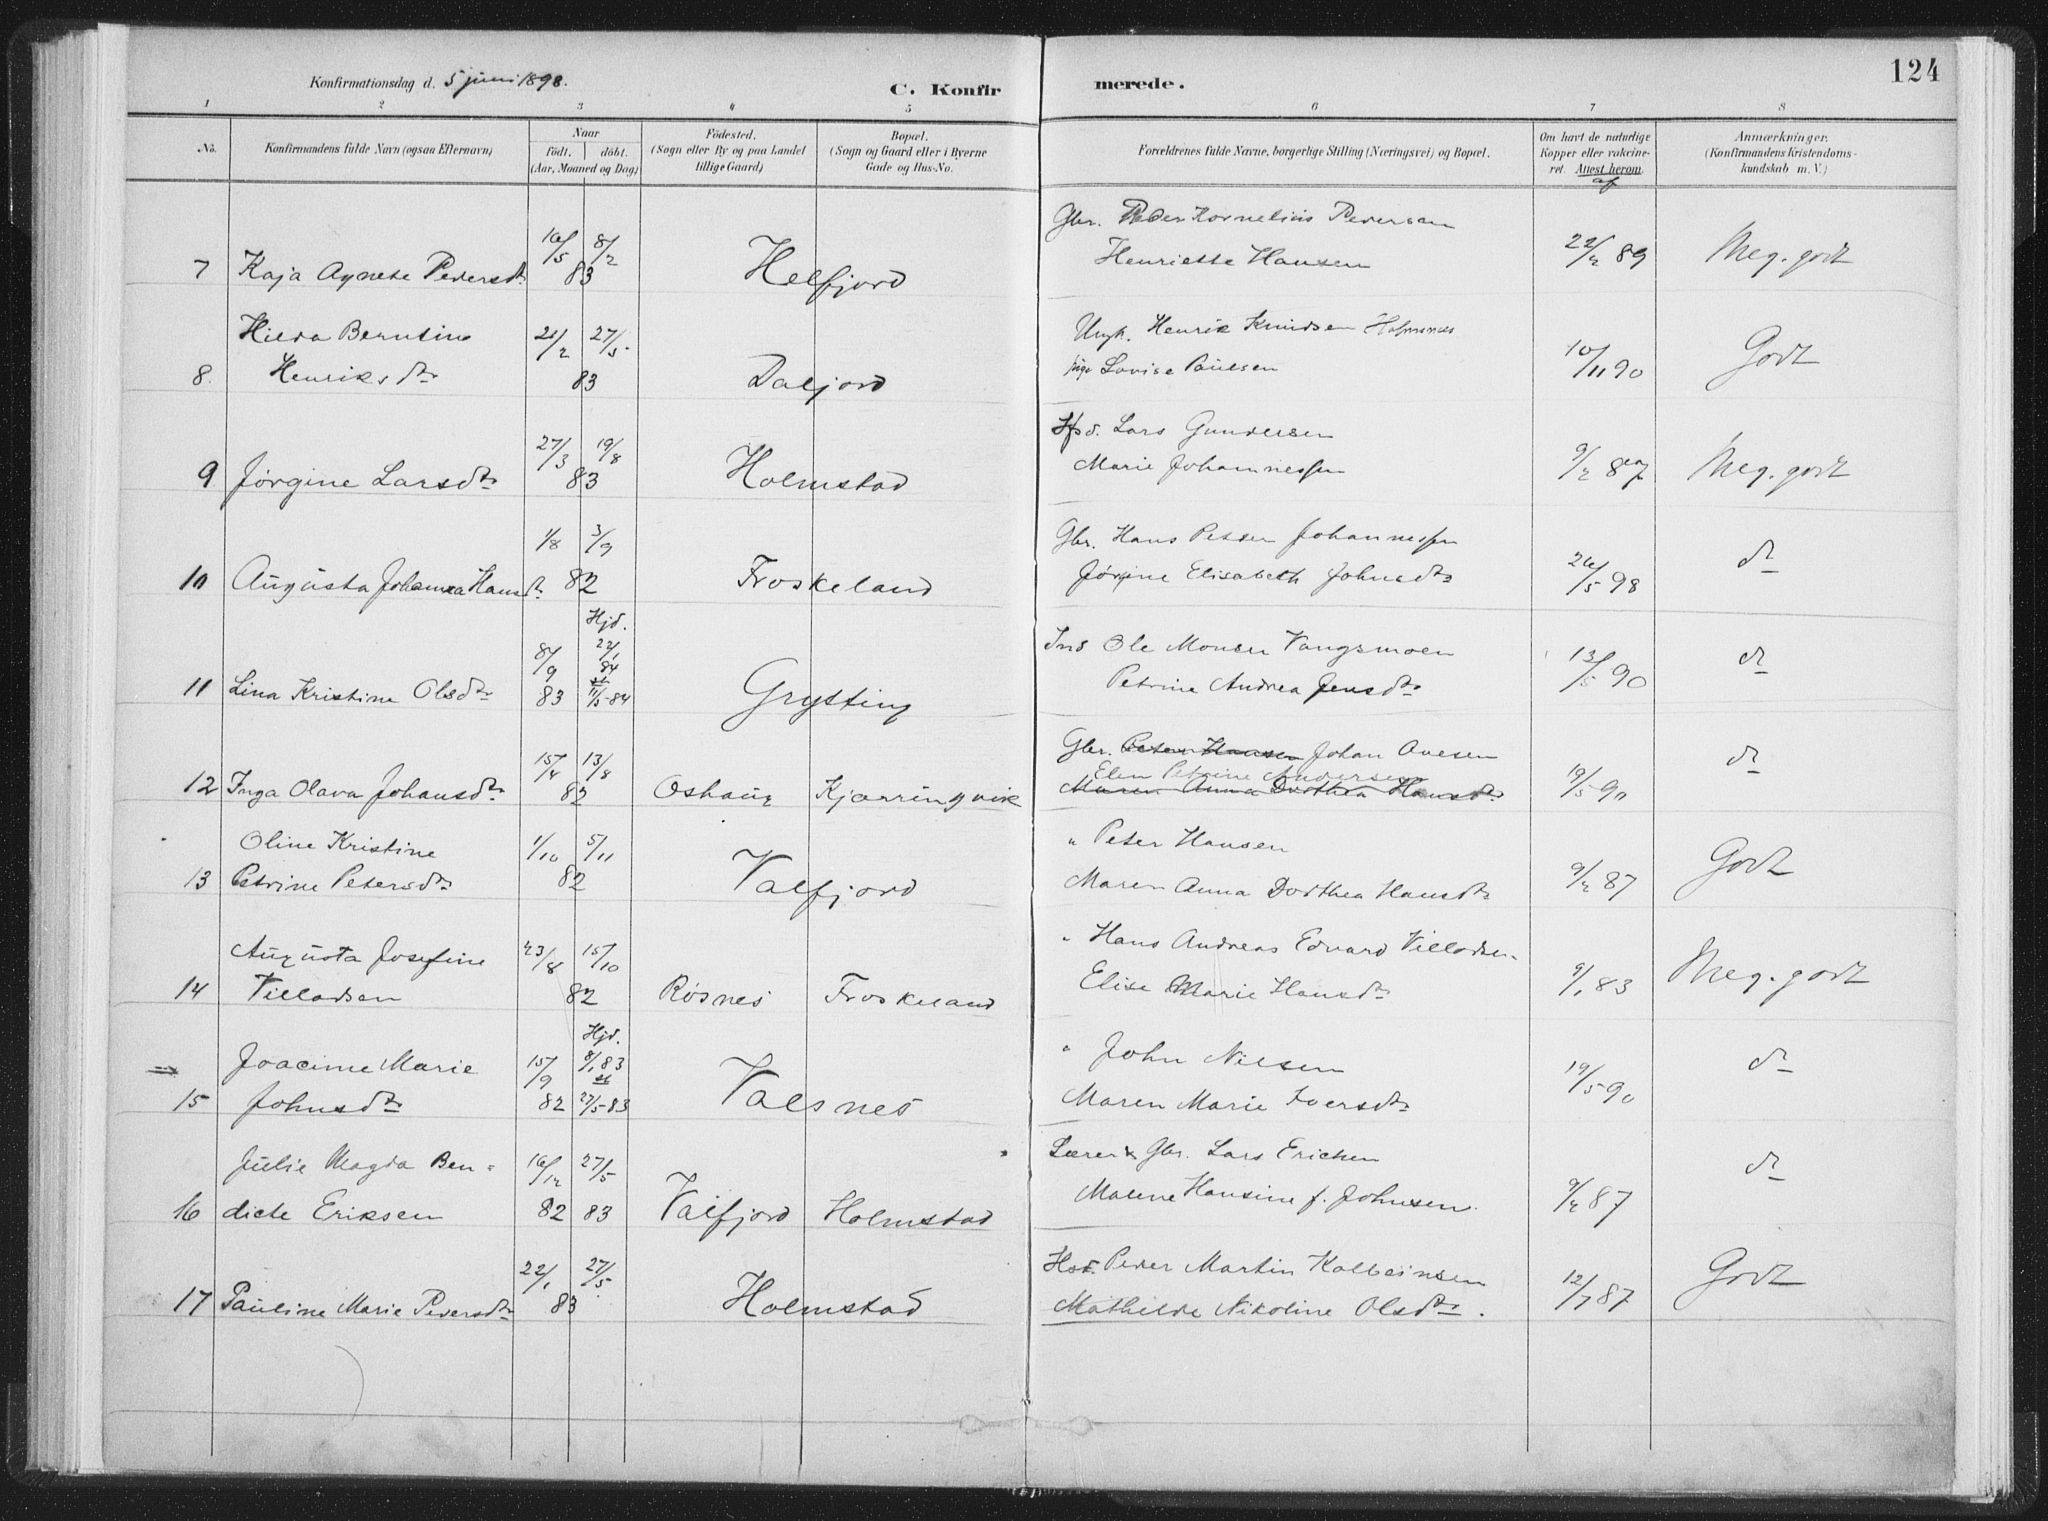 124
Konfirmationsdag d. 5 juni 1898.
C. Konfirmerede.
1 2 3 4 5 6 7 8
No.
Konfirmandens fulde Navn (ogsaa Efternavn)
Naar
födt. döbt.
(Aar, Maaned og Dag)
Födested.
(Sogn eller By og paa Landet
tillige Gaard)
Bopæl.
(Sogn og Gaard eller i Byerne
Gade og Hus-No.
Forældrenes fulde Navne, borgerlige Stilling (Næringsvei) og Bopæl.
Om havt de naturlige
Kopper eller vakcine-
ret. Attest herom
af
Anmærkninger.
(Konfirmandens Kristendoms-
kundskab m. V.)
Gbr. Peder Kornelius Pedersen
16/5 8/2
7 Kaja Agnete Pedersdtr 83 Helfjord Henriette Hansen 22/2 89 Meg. godt
Hilda Berntine 21/2 27/5 Ungk. Henrik Knudsen Holmsnes
8. Henriksdtr 83 Dalfjord Pige Lovise Paulsen 10/11 90 Godt
27/3 19/8 Hsd. Lars Gundersen
9 Jørgine Larsdtr 83 Holmstad Marie Johannessen 9/2 87 Meg. godt
1/8 3/9 Gbr. Hans Peder Johannessen
10 Augusta Johanna Hansdtr 82 Froskeland Jørgine Elisabeth Johnsdtr 26/5 98 do
Hjd.
8/9 22/1 84 Ins Ole Monsen Vangsmoen
st
11 Lina Kristine Olsdtr 83 11/5 84 Grytting Petrine Andrea Jensdtr 13/5 90 do
15/4 13/8 Gbr. Peter Hansen Johan Ovesen
Elen Petrine Andersen
12 Inga Olava Johansdtr 82 Oshaug Kjærringvik Maren Anna Dorthea Hansdtr 19/5 90 do
Oline Kristine 1/10 5/11 " Peter Hansen
13 Petrine Petersdtr 82 Valfjord Maren Anna Dorthea Hansdtr 9/2 87 Godt
Augusta Josefine 23/8 15/10 " Hans Andreas Edvard Villadsen
14 Villadsen 82 Røsnes Froskeland Elise Marie Hansdtr 9/1 83 Meg. godt
Hjd.
Joacime Marie 15/9 8/1 83 " John Nilsen
st
15 Johnsdtr 82 27/5 83 Valsnes Maren Marie Iversdtr 19/5 90 do
Julie Magda Ben- 16/12 27/5 Lærer & Gbr. Lars Ericksen
16 dicte Eriksen 82 83 Valfjord Holmstad Malene Hansine f. Johnsen. 9/2 87 do
22/1 27/5 Hsd. Peder Martin Kolbeinsen
17 Pauline Marie Pedersdtr 83 Holmstad Mathilde Nikoline Olsdtr. 12/7 87 Godt